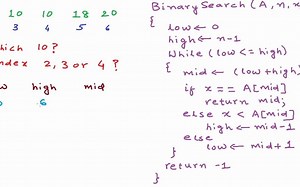 10 10 18 20
3 4 5 6
which 10?
index 2, 3 or 4 ?
high mid
6
BinarySearch (A, n, x
{
low ← 0
high ← n-1
While (low <= high)
{
mid ← (low+high)
if x == A[mid]
return mid;
else x < A[mid]
high ← mid-1
else
low ← mid+1
}
return -1
}